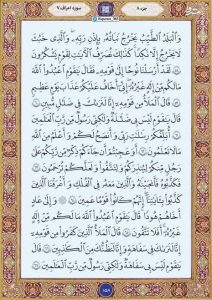 جزء ۸
سوره اعراف ۷
وَالْبَلَدُ الطَّيِّبُ يَخْرُجُ نَبَاتُهُ بِإِذْنِ رَبِّهِ وَالَّذِي خَبُثَ
لَا يَخْرُجُ إِلَّا نَكِدًا كَذَٰلِكَ نُصَرِّفُ الْآيَاتِ لِقَوْمٍ يَشْكُرُونَ
لَقَدْ أَرْسَلْنَا نُوحًا إِلَىٰ قَوْمِهِ فَقَالَ يَٰقَوْمِ اعْبُدُوا اللَّهَ
مَا لَكُم مِّنْ إِلَٰهٍ غَيْرُهُ إِنِّي أَخَافُ عَلَيْكُمْ عَذَابَ يَوْمٍ عَظِيمٍ
قَالَ الْمَلَأُ مِن قَوْمِهِ إِنَّا لَنَرَاكَ فِي ضَلَالٍ مُّبِينٍ قَالَ
يَٰقَوْمِ لَيْسَ بِي ضَلَالَةٌ وَلَٰكِنِّي رَسُولٌ مِّن رَّبِّ الْعَالَمِينَ
أُبَلِّغُكُمْ رِسَالَاتِ رَبِّي وَأَنصَحُ لَكُمْ وَأَعْلَمُ مِنَ اللَّهِ
مَا لَا تَعْلَمُونَ أَوَعَجِبْتُمْ أَن جَاءَكُمْ ذِكْرٌ مِّن رَّبِّكُمْ عَلَىٰ
رَجُلٍ مِّنكُمْ لِيُنذِرَكُمْ وَلِتَتَّقُوا وَلَعَلَّكُمْ تُرْحَمُونَ
فَكَذَّبُوهُ فَأَنجَيْنَاهُ وَالَّذِينَ مَعَهُ فِي الْفُلْكِ وَأَغْرَقْنَا الَّذِينَ
كَذَّبُوا بِآيَاتِنَا إِنَّهُمْ كَانُوا قَوْمًا عَمِينَ وَإِلَىٰ عَادٍ
أَخَاهُمْ هُودًا قَالَ يَٰقَوْمِ اعْبُدُوا اللَّهَ مَا لَكُم مِّنْ إِلَٰهٍ
غَيْرُهُ أَفَلَا تَتَّقُونَ قَالَ الْمَلَأُ الَّذِينَ كَفَرُوا مِن قَوْمِهِ
إِنَّا لَنَرَاكَ فِي سَفَاهَةٍ وَإِنَّا لَنَظُنُّكَ مِنَ الْكَاذِبِينَ قَالَ
يَٰقَوْمِ لَيْسَ بِي سَفَاهَةٌ وَلَٰكِنِّي رَسُولٌ مِّن رَّبِّ الْعَالَمِينَ
۱۵۸